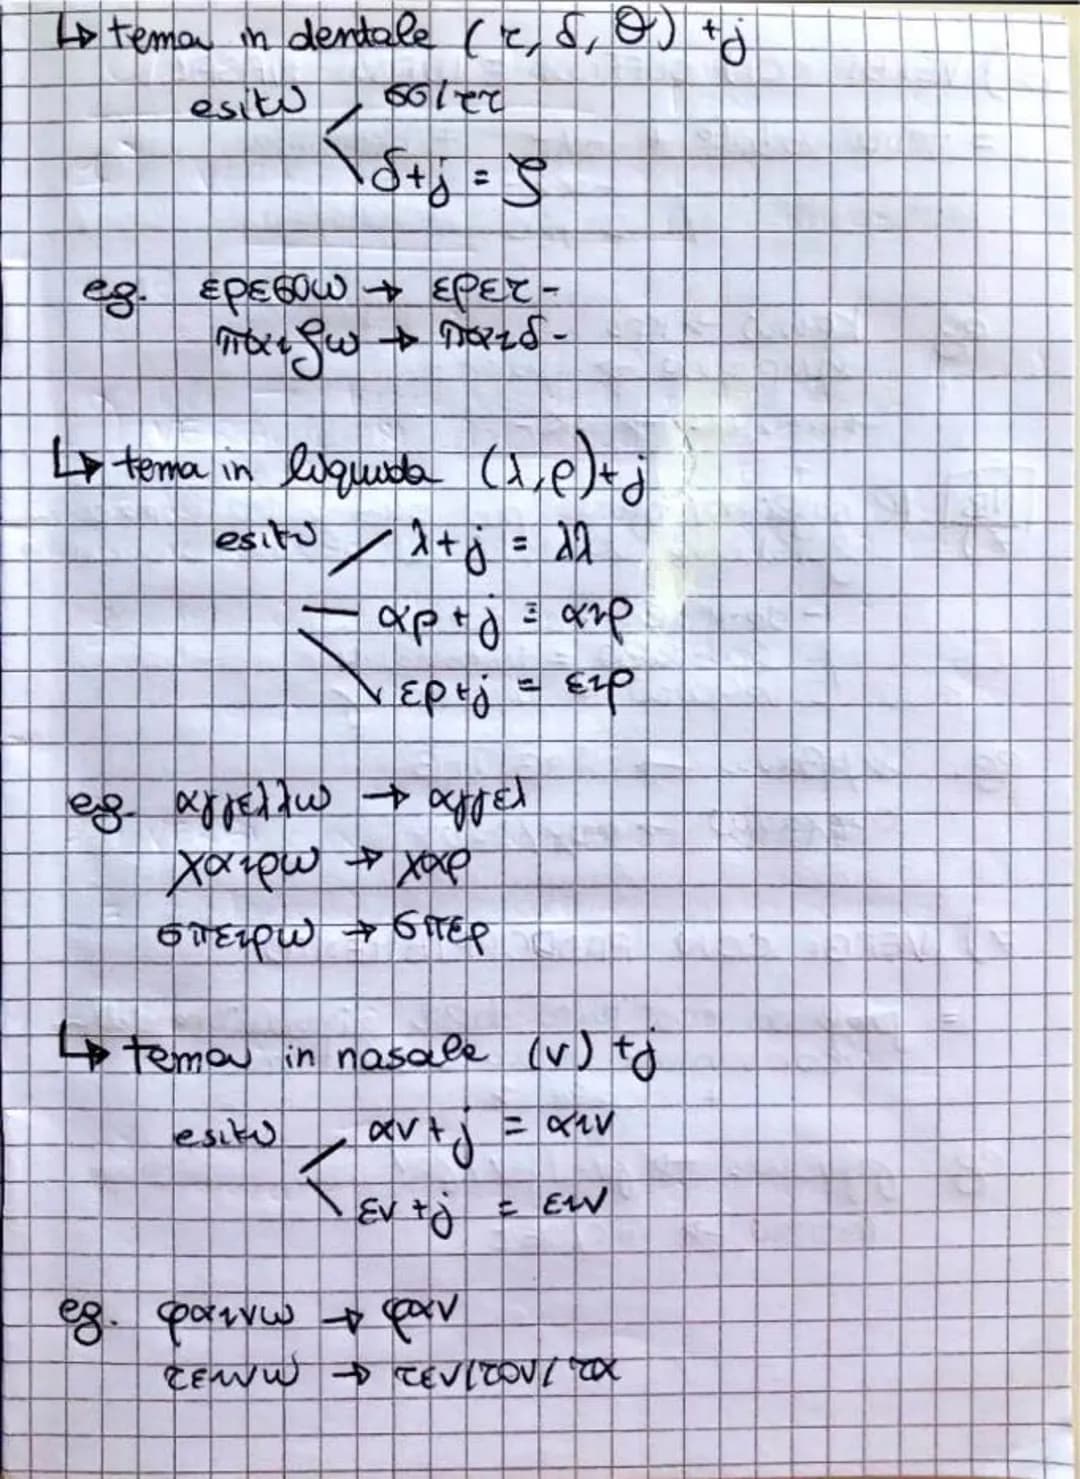 ↳ tema in dentale (τ, δ, θ) + j
esito σσ/ττ
δ+j = ζ
eg. ερεσσω → ερετ-
παιζω → παιδ-
↳ tema in liquida (λ, ρ) + j
esito λ+j = λλ
αρ+j = αιρ
ερ+j = ειρ
eg. αγγελλω → αγγελ
χαιρω → χαρ
σπειρω → σπερ
↳ tema in nasale (ν) + j
esito αν+j = αιν
εν+j = ειν
eg. φαινω → φαν
τεινω → τεν/τον/τα